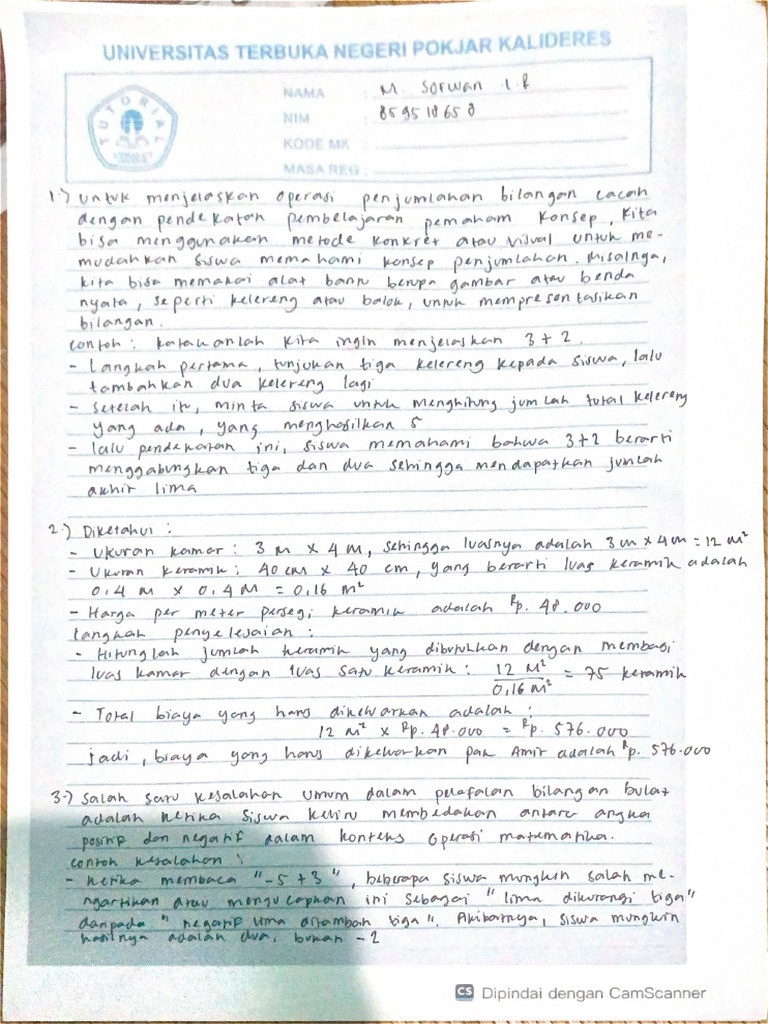 UNIVERSITAS TERBUKA NEGERI POKJAR KALIDERES
TUTORIAL
NAMA : M. Sorwan I.R
NIM : 859518658
KODE MK :
MASA REG :
1.) Untuk menjelaskan operasi penjumlahan bilangan cacah
dengan pendekatan pembelajaran pemaham konsep, kita
bisa menggunakan metode konkret atau visual untuk me-
mudahkan siswa memahami konsep penjumlahan. Misalnya,
kita bisa memakai alat bantu berupa gambar atau benda
nyata, seperti kelereng atau balok, untuk mempresentasikan
bilangan.
contoh : katakanlah kita ingin menjelaskan 3 + 2.
- Langkah pertama, tunjukan tiga kelereng kepada siswa, lalu
tambahkan dua kelereng lagi
- Setelah itu, minta siswa untuk menghitung jumlah total kelereng
yang ada, yang menghasilkan 5
- lalu pendekatan ini, siswa memahami bahwa 3+2 berarti
menggabungkan tiga dan dua sehingga mendapatkan jumlah
akhir lima
2.) Diketahui :
- Ukuran kamar : 3 m x 4 m, sehingga luasnya adalah 3 m x 4 m = 12 m²
- Ukuran keramik : 40 cm x 40 cm, yang berarti luas keramik adalah
0.4 m x 0.4 m = 0,16 m²
- Harga per meter persegi keramik adalah Rp. 48.000
Langkah penyelesaian :
- Hitunglah jumlah keramik yang dibutuhkan dengan membagi
luas kamar dengan luas satu keramik : 12 m² / 0,16 m² = 75 keramik
- Total biaya yang harus dikeluarkan adalah :
12 m² x Rp. 48.000 = Rp. 576.000
Jadi, biaya yang harus dikeluarkan pak Amir adalah Rp. 576.000
3.) Salah satu kesalahan umum dalam pelafalan bilangan bulat
adalah ketika siswa keliru membedakan antara angka
positip dan negatif dalam konteks operasi matematika.
contoh kesalahan :
- ketika membaca "-5 + 3", beberapa siswa mungkin salah me-
ngartikan atau mengucapkan ini sebagai "lima dikurangi tiga"
daripada "negatif lima ditambah tiga". Akibatnya, siswa mungkin
hasilnya adalah dua, bukan -2
CS Dipindai dengan CamScanner